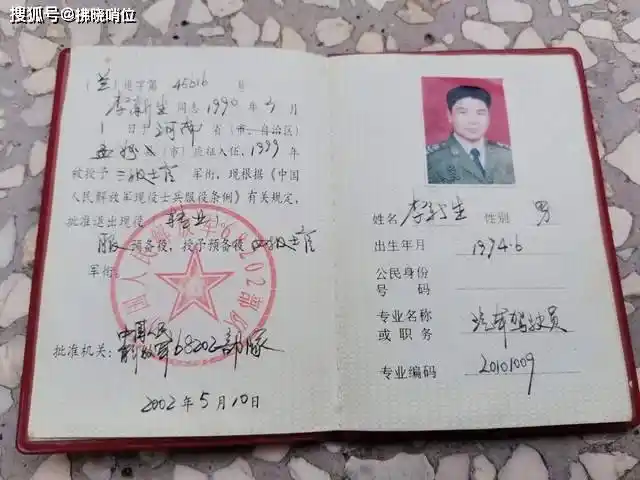 搜狐号@拂晓哨位
(兰)退字第 45616 号
李新生同志1990年3月
1日于河南省(市、自治区)
孟县(市)应征入伍,1999年
被授予三级士官军衔,现根据《中国
人民解放军现役士兵服役条例》有关规定,
批准退出现役(转业)。
服预备役,授予预备役 士官
军衔。
批准机关:中国人民
解放军68202部队
2002年5月10日
姓名 李新生 性别 男
出生年月 1974.6
公民身份
号码
专业名称
或职务 驾驶员
专业编码 20101009